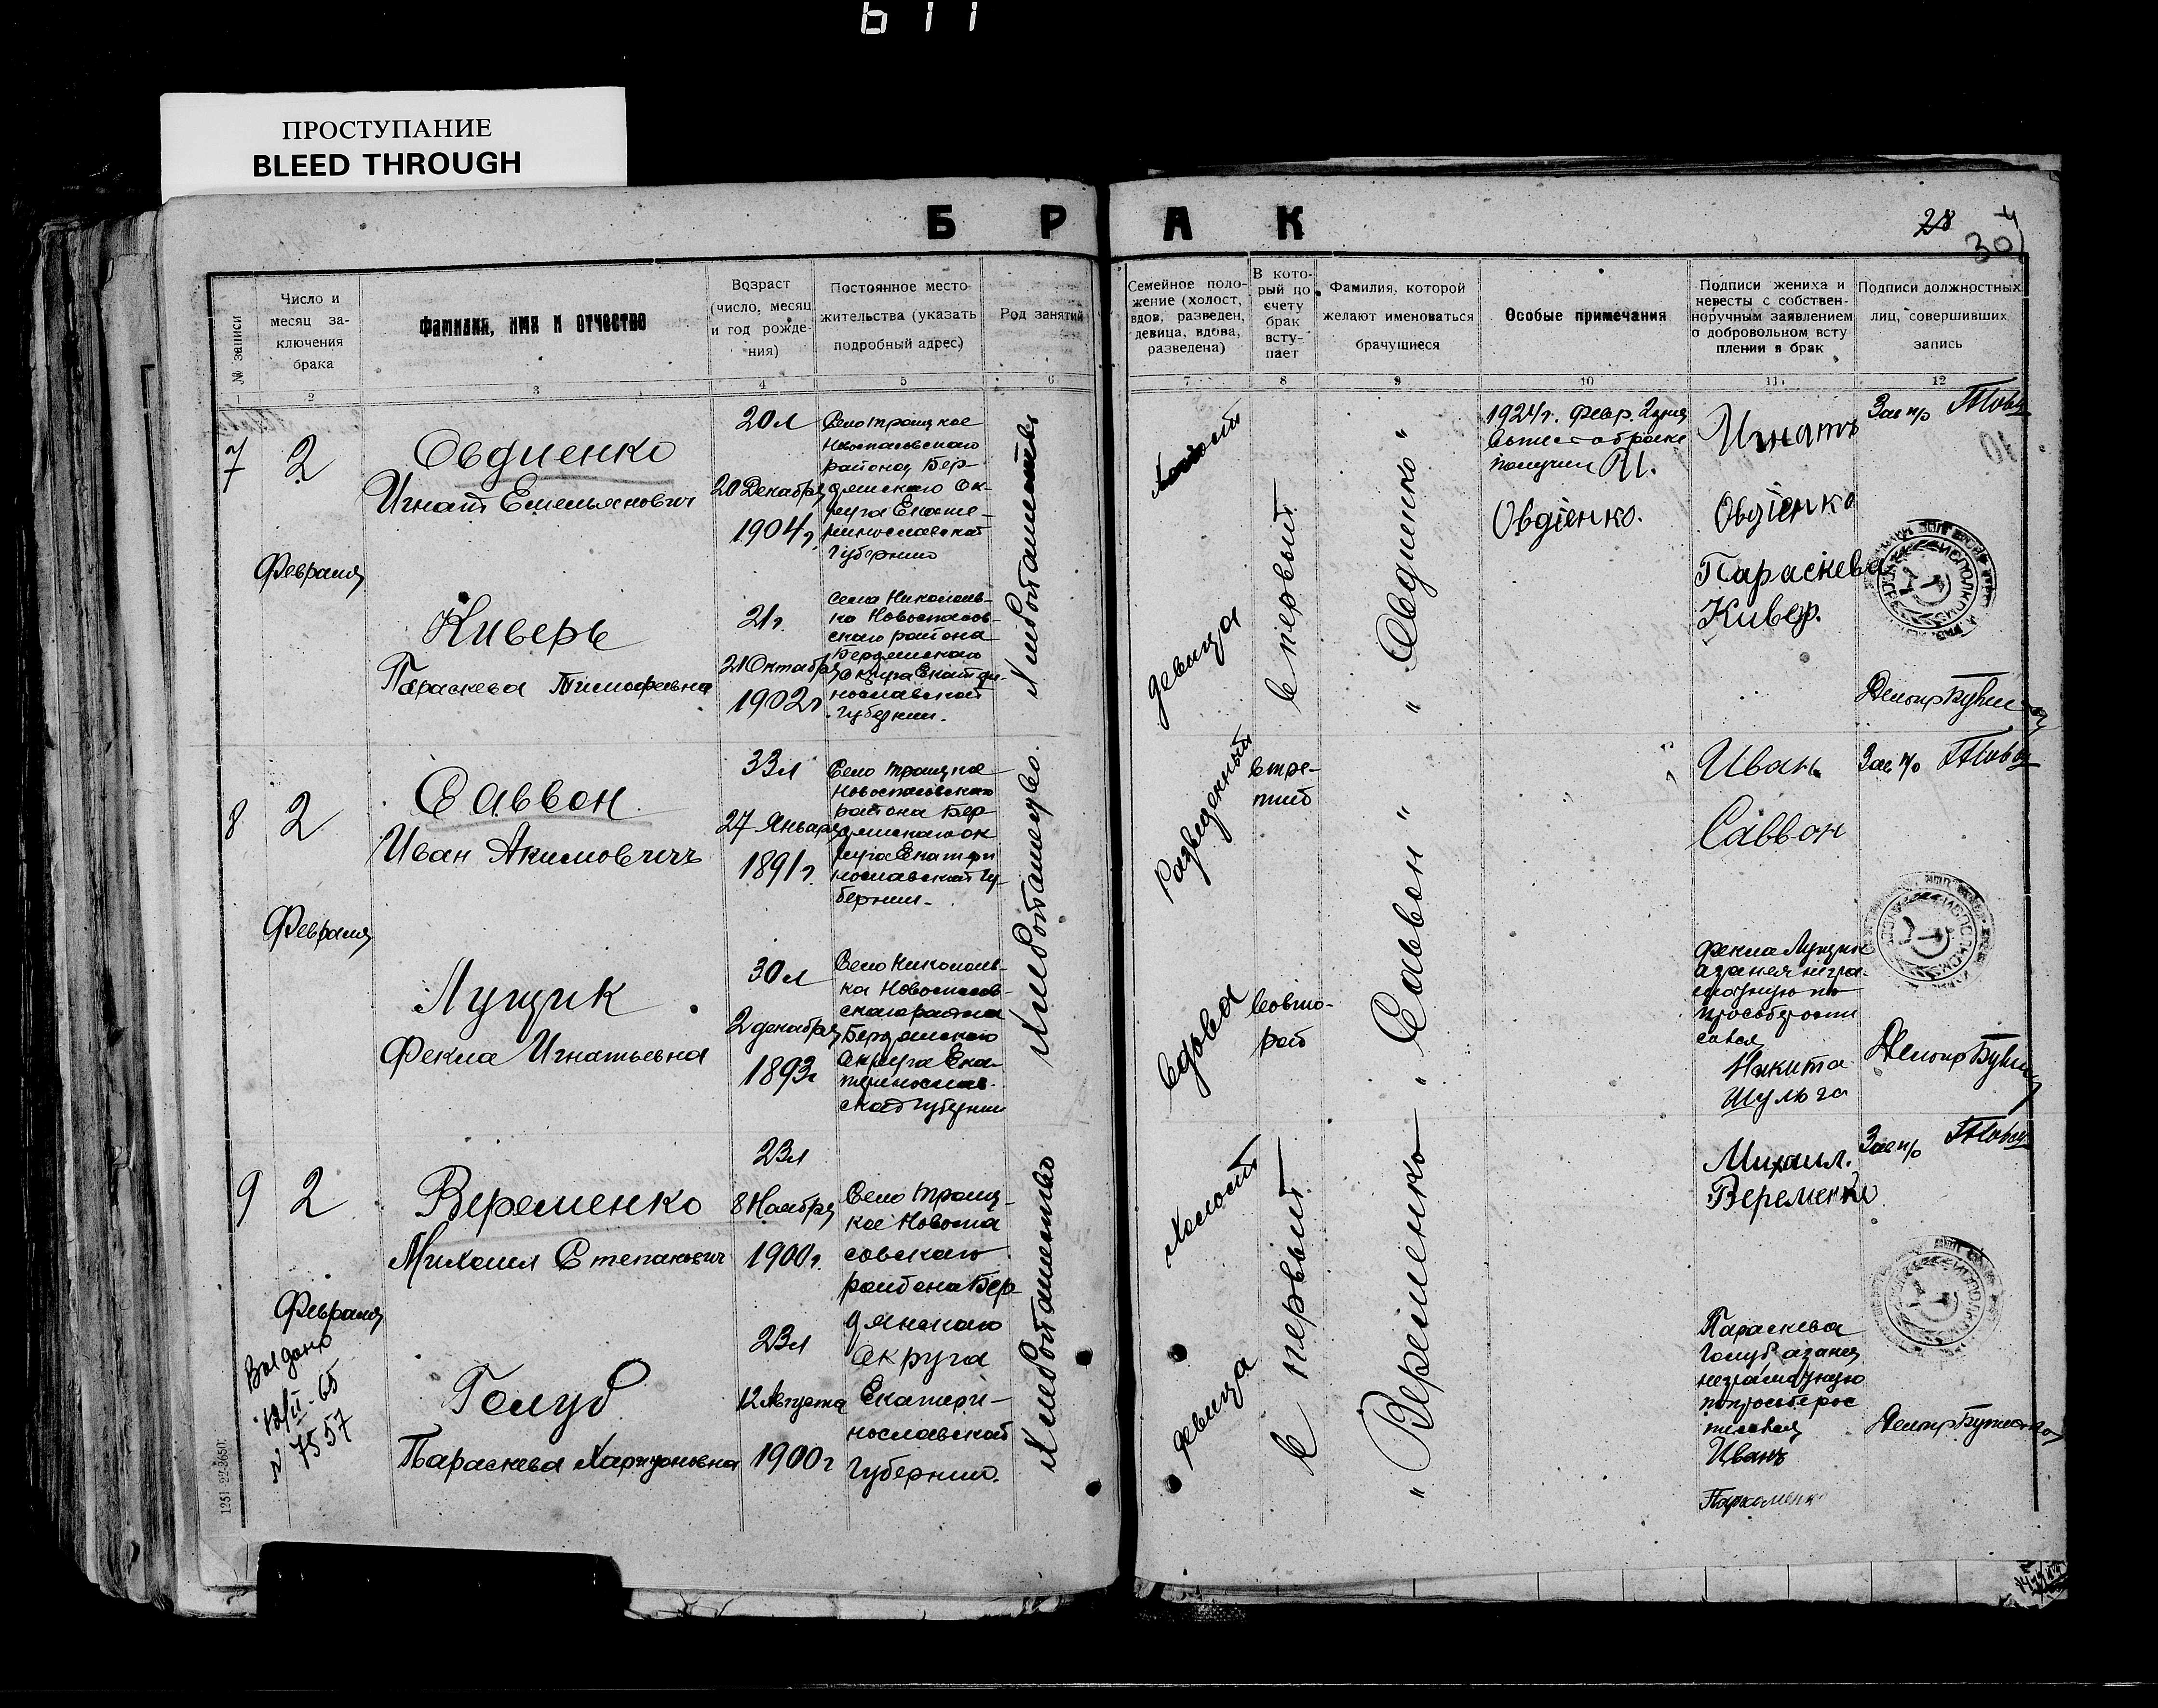 611
ПРОСТУПАНИЕ
BLEED THROUGH
БРАК
28
30
№ записи
Число и
месяц за-
ключения
брака
Фамилия, имя и отчество
Возраст
(число, месяц
и год рожде-
ния)
Постоянное место
жительства (указать
подробный адрес)
Род занятий
Семейное поло-
жение (холост,
вдов, разведен,
девица, вдова,
разведена)
В кото-
рый по
счету
брак
всту-
пает
Фамилия, которой
желают именоваться
брачущиеся
Особые примечания
Подписи жениха и
невесты с собствен-
норучным заявлением
о добровольном всту
плении в брак
Подписи должностных
лиц, совершивших
запись
1 2 3 4 5 6 7 8 9 10 11 12
7
2
Февраля
Овдиенко
Игнат Емельянович
20 л
20 Декабря
1904 г.
Село Троицкое
Новоспасовского
района Бер-
дянского Ок-
руга Екате-
ринославской
Губернии
Хлебопашество
Холост
в первый
" Овдиенко "
1924 г. Февр. 2 дня
получил
Овдіенко.
Игнатъ
Овдіенко
Киверь
Параскева Тимофеевна
21 г.
21 Октября
1902 г
Село Николаев-
ка Новоспасов-
ского района
Бердянского
Округа Екатери-
нославской
Губернии.
девица
Параскева
Кивер.
8
2
Февраля
Саввон
Иван Акимовичъ
33 л
27 Января
1891 г.
Село Троицкое
Новоспасовского
района Бер
дянского ок
руга Екатери
нославской Гу-
бернии-
Хлебопашество.
Разведенный
в тре-
тий
" Саввон "
Иванъ
Саввон
Лущик
Фекла Игнатьевна
30 л
2 декабря
1893 г
Село Николаев-
ка Новоспасов-
ского района
Бердянского
Округа Ека-
теринослав-
ской Губернии
Вдова
во вто-
рой
Фекла Лущик
а за нея негра-
мотную по
просьбе роспи
сался
Никита
Шульга
9
2
Февраля
Выдано
12/II-65
№ 7557
Веременко
Михаил Степанович
23 л
8 Ноября
1900 г.
Село Троиц-
кое Новоспа
совского
района Бер
дянского
Округа
Екатери-
нославской
Губернии.
Хлебопашество
Холост
в первый
" Веременко "
Михаил.
Веременко
Голуб
Параскева Харитоновна
23 л
12 Августа
1900 г
девица
Параскева
Голуб а за нея
неграмотную
по просьбе рос
писался
Иванъ
Пархоменко